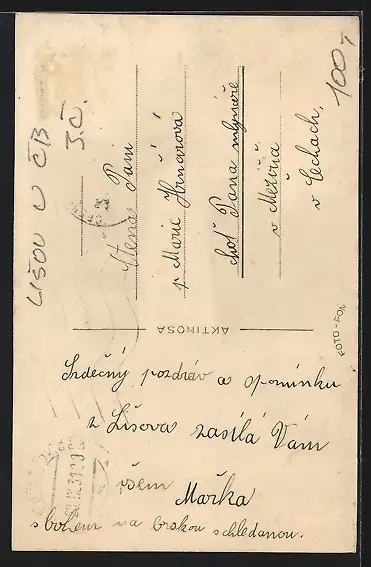 LIŠOV U ČB
J.Č.
100,-
Ctěná Paní
p Marie Hrnčířová
choť Pana mlynáře
v
v Čechách,
AKTINOSA
FOTO-FON
Srdečný pozdrav a spomínku
z Lišova zasílá Vám
všem Mařka
s bohem na brskou schledanou.